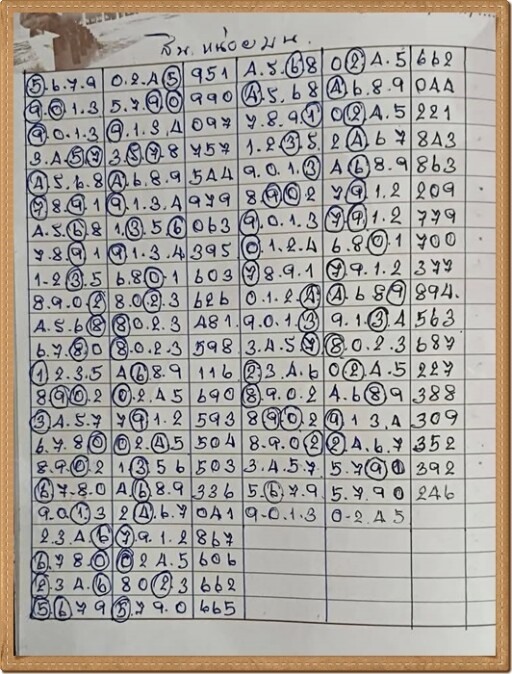 สน. หน่อยบน.
5.6.7.9 0.2.4.5 951 4.5.6.8 0.2.4.5 662
9.0.1.3 5.7.9.0 990 4.5.6.8 4.6.8.9 044
9.0.1.3 9.1.3.4 097 7.8.9.1 0.2.4.5 221
3.4.5.7 3.5.7.8 757 1.2.3.5. 2.4.6.7 843
4.5.6.8 4.6.8.9 544 9.0.1.3 4.6.8.9 863
7.8.9.1 9.1.3.4 979 8.9.0.2 7.9.1.2 209
4.5.6.8 1.3.5.6 063 9.0.1.3 7.9.1.2 779
7.8.9.1 9.1.3.4 395 0.1.2.4 6.8.0.1 700
1-2.3.5 6.8.0.1 603 7.8.9.1 7.9.1.2 377
8.9.0.2 8.0.2.3 626 0.1.2.4 4.6.8.9 894.
4.5.6.8 8.0.2.3 481. 9.0.1.3 9.1.3.4 563
6.7.8.0 8.0.2.3 598 3.4.5.7 8.0.2.3 687
1.2.3.5 4.6.8.9 116 2.3.4.6 0.2.4.5 227
8.9.0.2 0.2.4.5 690 8.9.0.2 4.6.8.9 388
3.4.5.7 7.9.1.2 593 8.9.0.2 9.1.3.4 309
6.7.8.0 0.2.4.5 504 8.9.0.2 2.4.6.7 352
8.9.0.2 1.3.5.6 503 3.4.5.7. 5.7.9.0 392
6.7.8.0 4.6.8.9 336 5.6.7.9 5.7.9.0 246
9.0.1.3 2.4.6.7 041 9-0.1.3 0-2.4.5
2.3.4.6 7.9.1.2 867
6.7.8.0 0.2.4.5 606
2.3.4.6 8.0.2.3 662
5.6.7.9 5.7.9.0 665